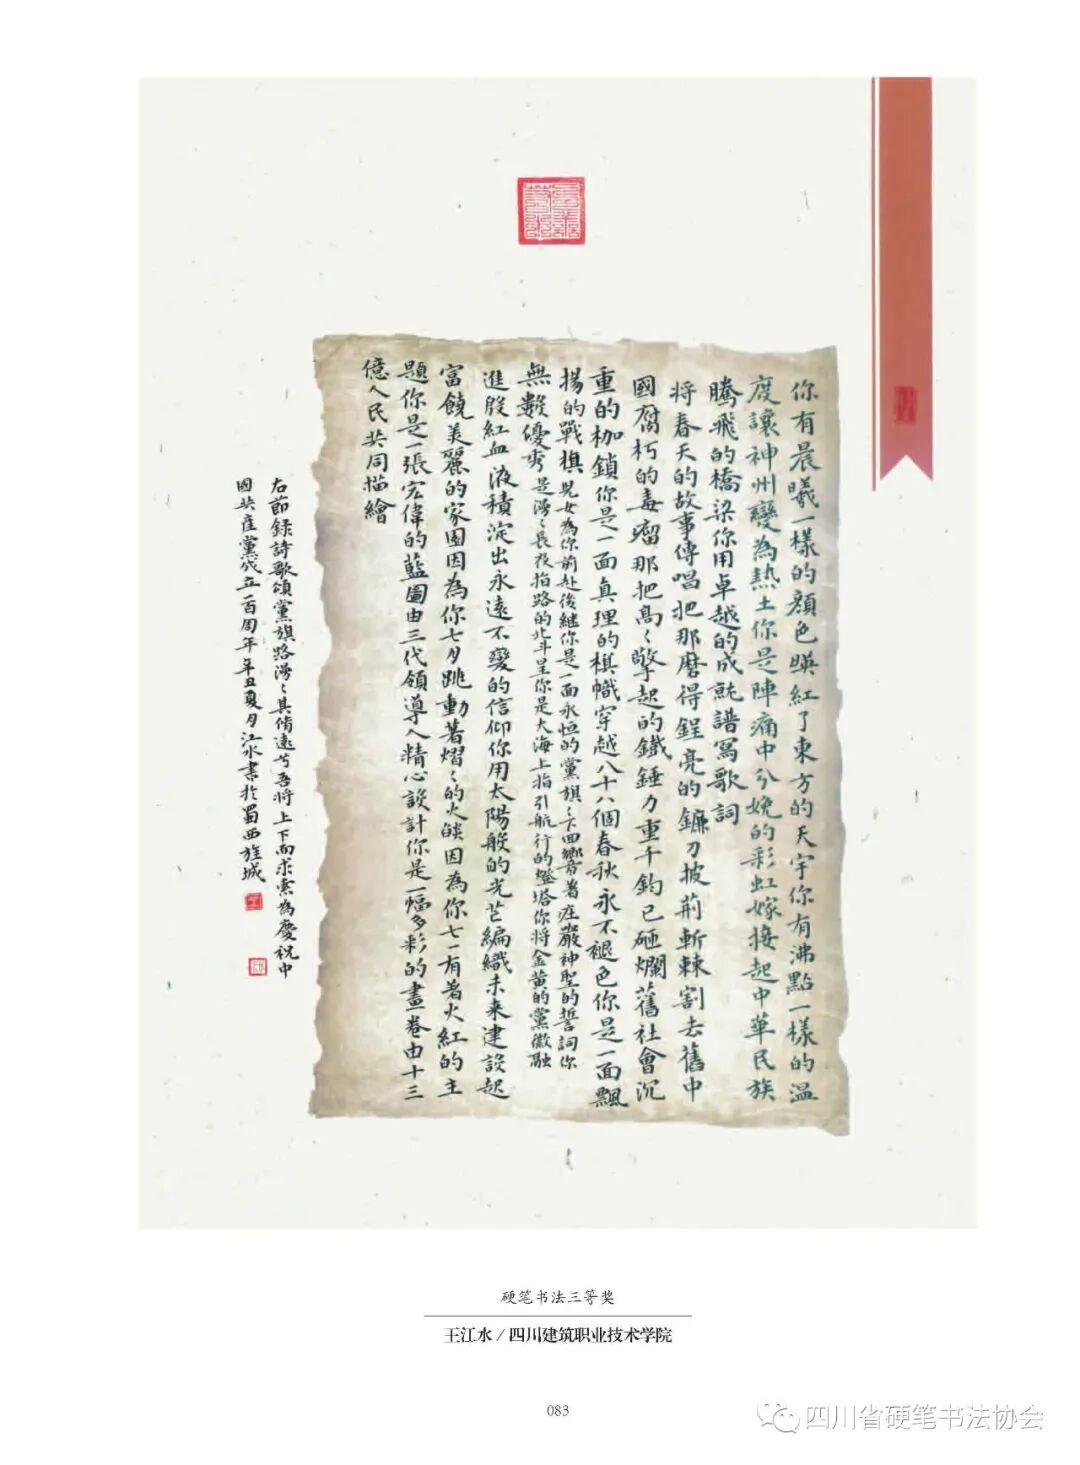 你有晨曦一樣的顔色暎紅了東方的天宇你有沸點一樣的温
度讓神州變為熱土你是陣痛中分娩的彩虹嫁接起中華民族
騰飛的橋梁你用卓越的成就譜寫歌詞
將春天的故事傳唱把那磨得鋥亮的鐮刀披荊斬棘割去舊中
國腐朽的毒瘤那把高〻擎起的鐵錘力重千鈞已砸爛舊社會沉
重的枷鎖你是一面真理的棋幟穿越八十八個春秋永不褪色你是一面飄
揚的戰棋兒女為你前赴後继你是一面永恒的黨旗〻下回響着庄嚴神聖的誓詞你
無數優秀是漫〻長夜指路的北斗星你是大海上指引航行的燈塔你将金黄的黨徽融
進殷紅血液積淀出永遠不變的信仰你用太陽般的光芒編織未来建設起
富饒美麗的家園因為你七月跳動著熠〻的火燄因為你七一有著火紅的主
題你是一張宏偉的藍圖由三代領導人精心設計你是一幅多彩的畫卷由十三
億人民共同描繪
右節録詩歌頌黨旗路漫〻其脩遠兮吾将上下而求索為慶祝中
國共產黨成立一百周年辛丑夏月江水書於蜀西旌城
硬笔书法三等奖
王江水/四川建筑职业技术学院
083
四川省硬笔书法协会